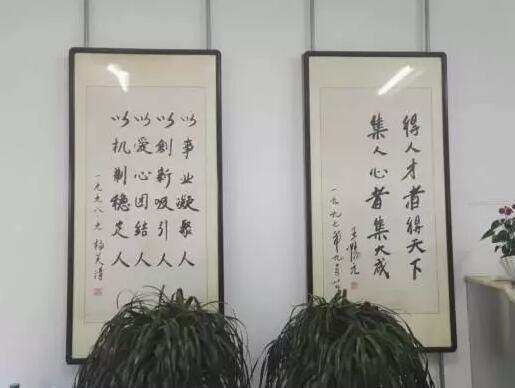 以事业凝聚人
以創新吸引人
以愛心团结人
以机制稳定人
一九九八.元 杨芙清
得人才者得天下
集人心者集大成
王陽元
一九九七年九月